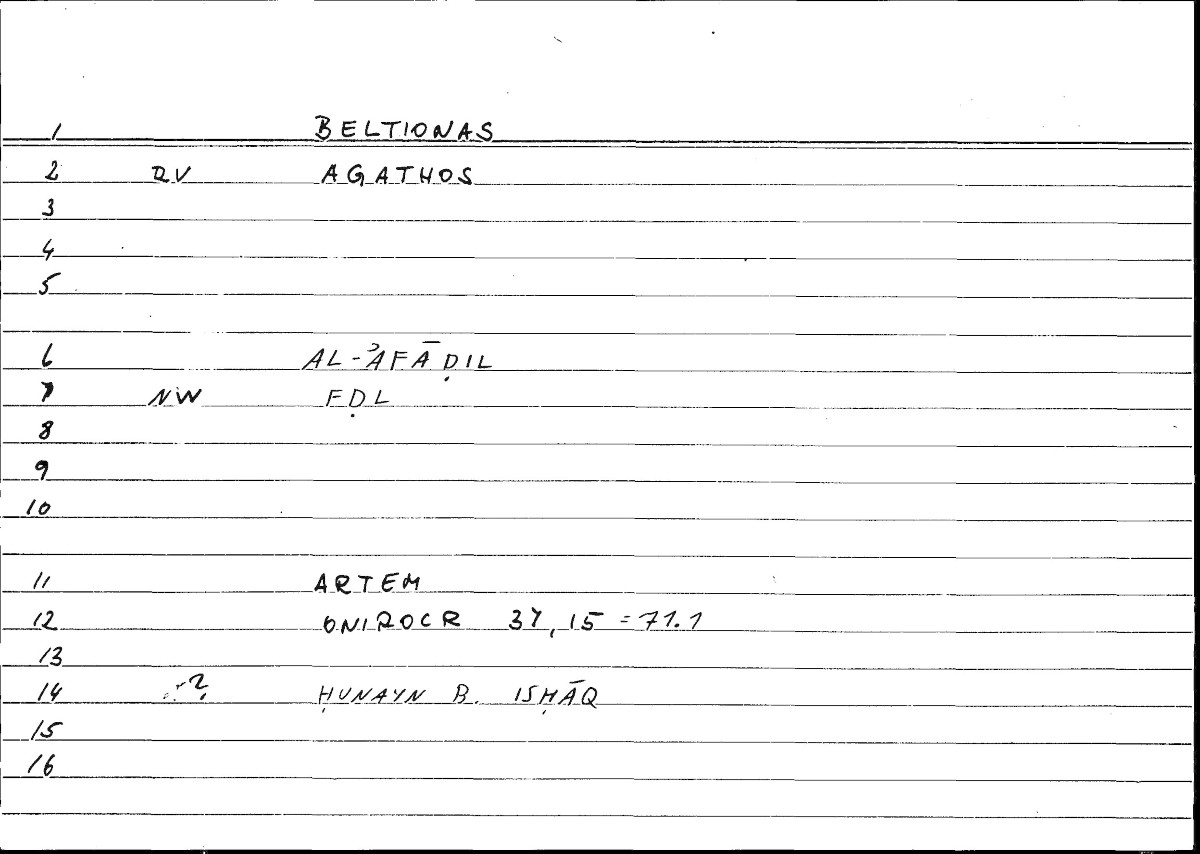 1 BELTIONAS
2 QV AGATHOS
3
4
5
6 AL-ʾAFĀḌIL
7 NW FḌL
8
9
10
11 ARTEM
12 ONIROCR 37,15 = 71.1
13
14 ḤUNAYN B. ISḤĀQ
15
16